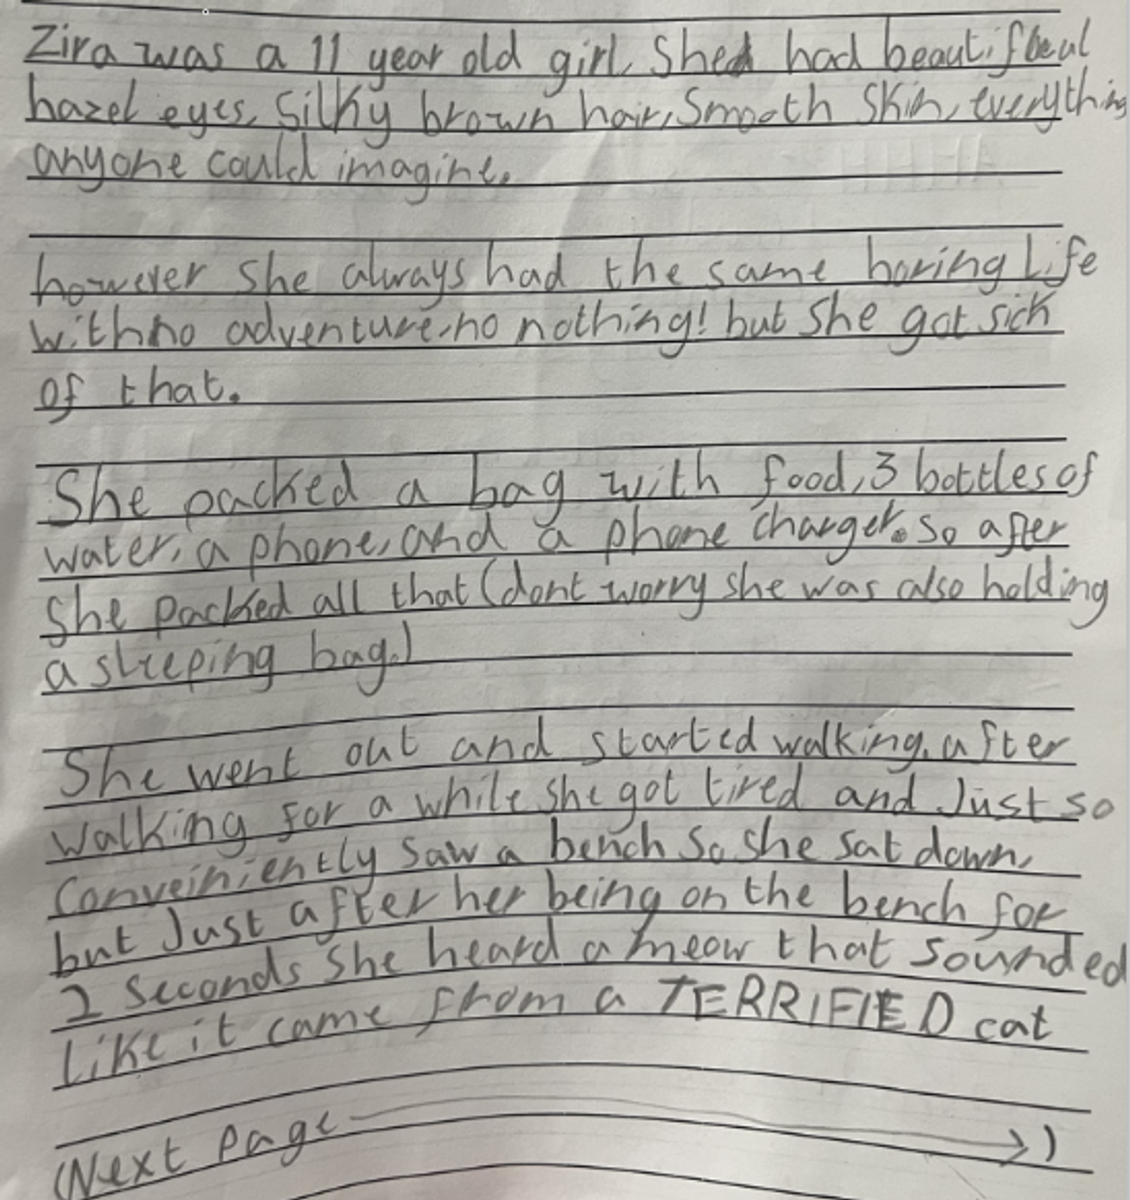 Zira was a 11 year old girl, She had beautifeul
hazel eyes, Silky brown hair, Smooth Skin, everything
anyone could imagine.
however She always had the same boring Life
with no adventure, no nothing! but She got sick
of that.
She packed a bag with food, 3 bottles of
water, a phone, and a phone charger. So after
She packed all that (dont worry she was also holding
a sleeping bag.)
She went out and started walking, after
walking for a while she got tired and Just so
Conveiniently Saw a bench So she sat down,
but Just after her being on the bench for
2 Seconds She heard a meow that Sounded
Like it came from a TERRIFIED cat
(Next Page →)